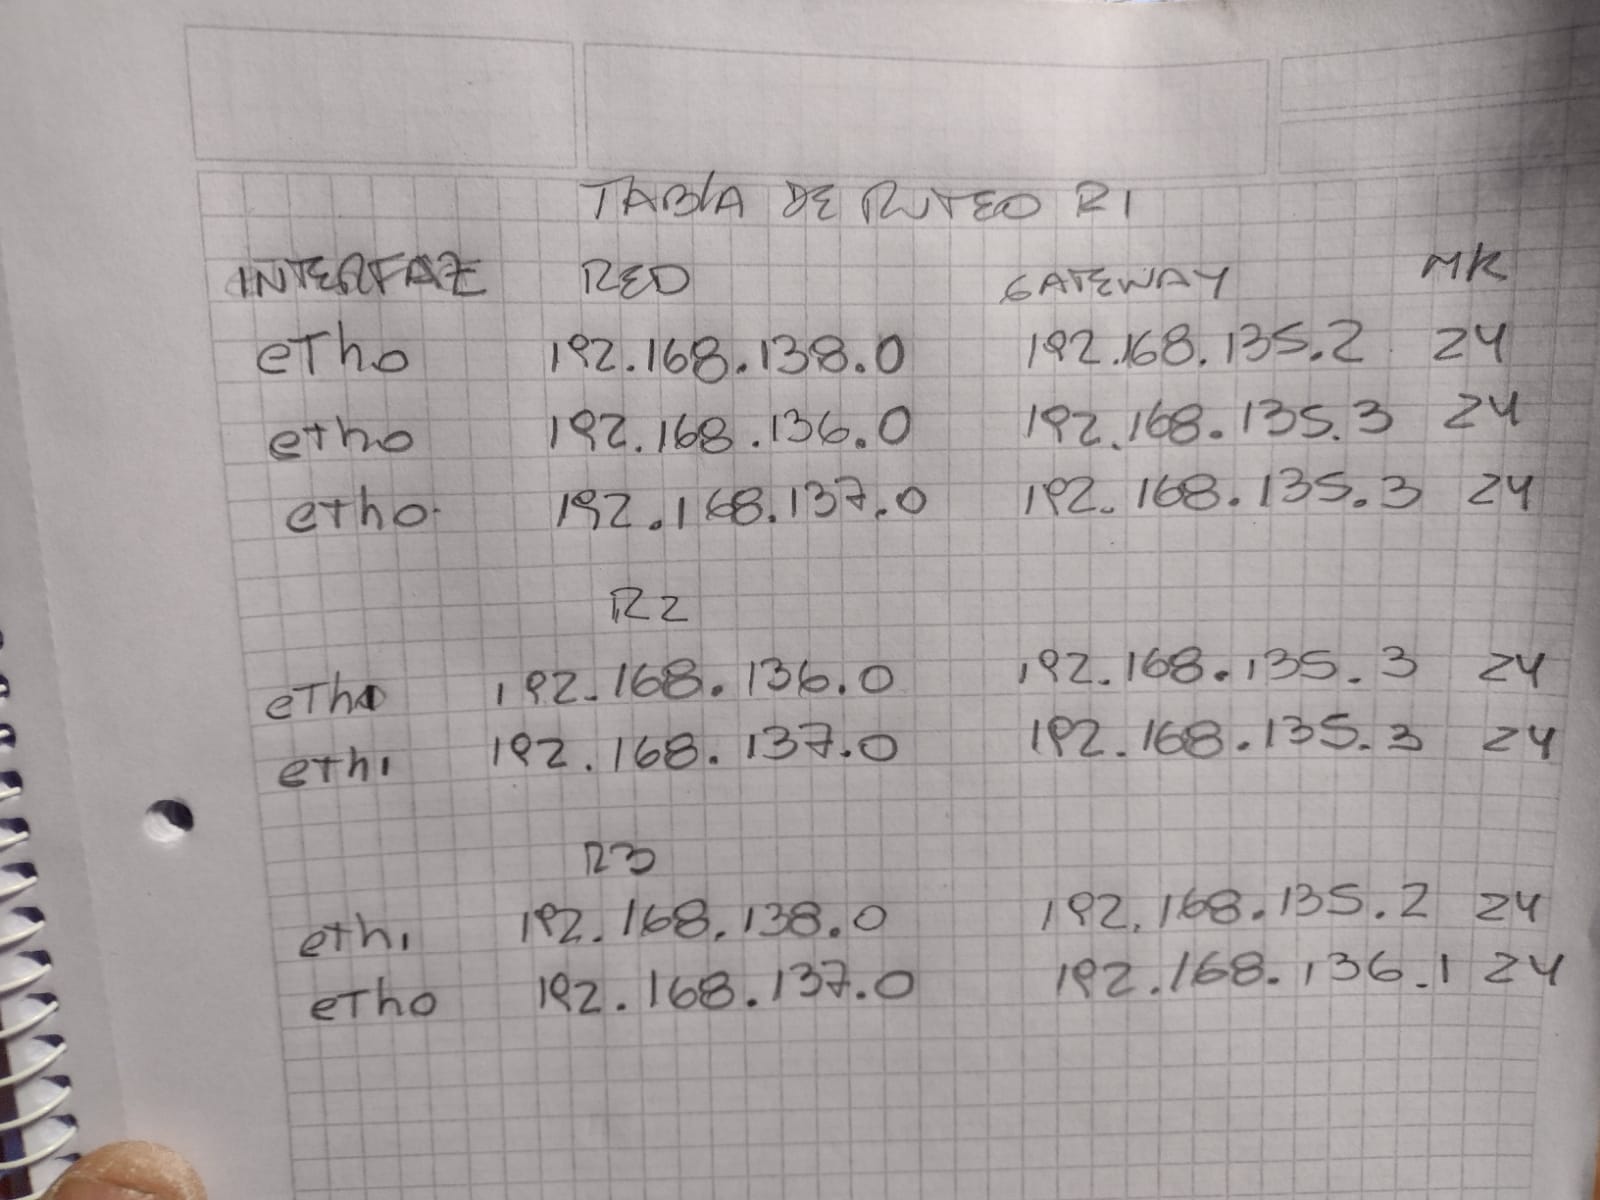 TABLA DE RUTEO R1
INTERFAZ RED GATEWAY MK
eTh0 192.168.138.0 192.168.135.2 24
eth0 192.168.136.0 192.168.135.3 24
eth0 192.168.137.0 192.168.135.3 24
R2
eTh1 192.168.136.0 192.168.135.3 24
eth1 192.168.137.0 192.168.135.3 24
R3
eth1 192.168.138.0 192.168.135.2 24
eTh0 192.168.137.0 192.168.136.1 24